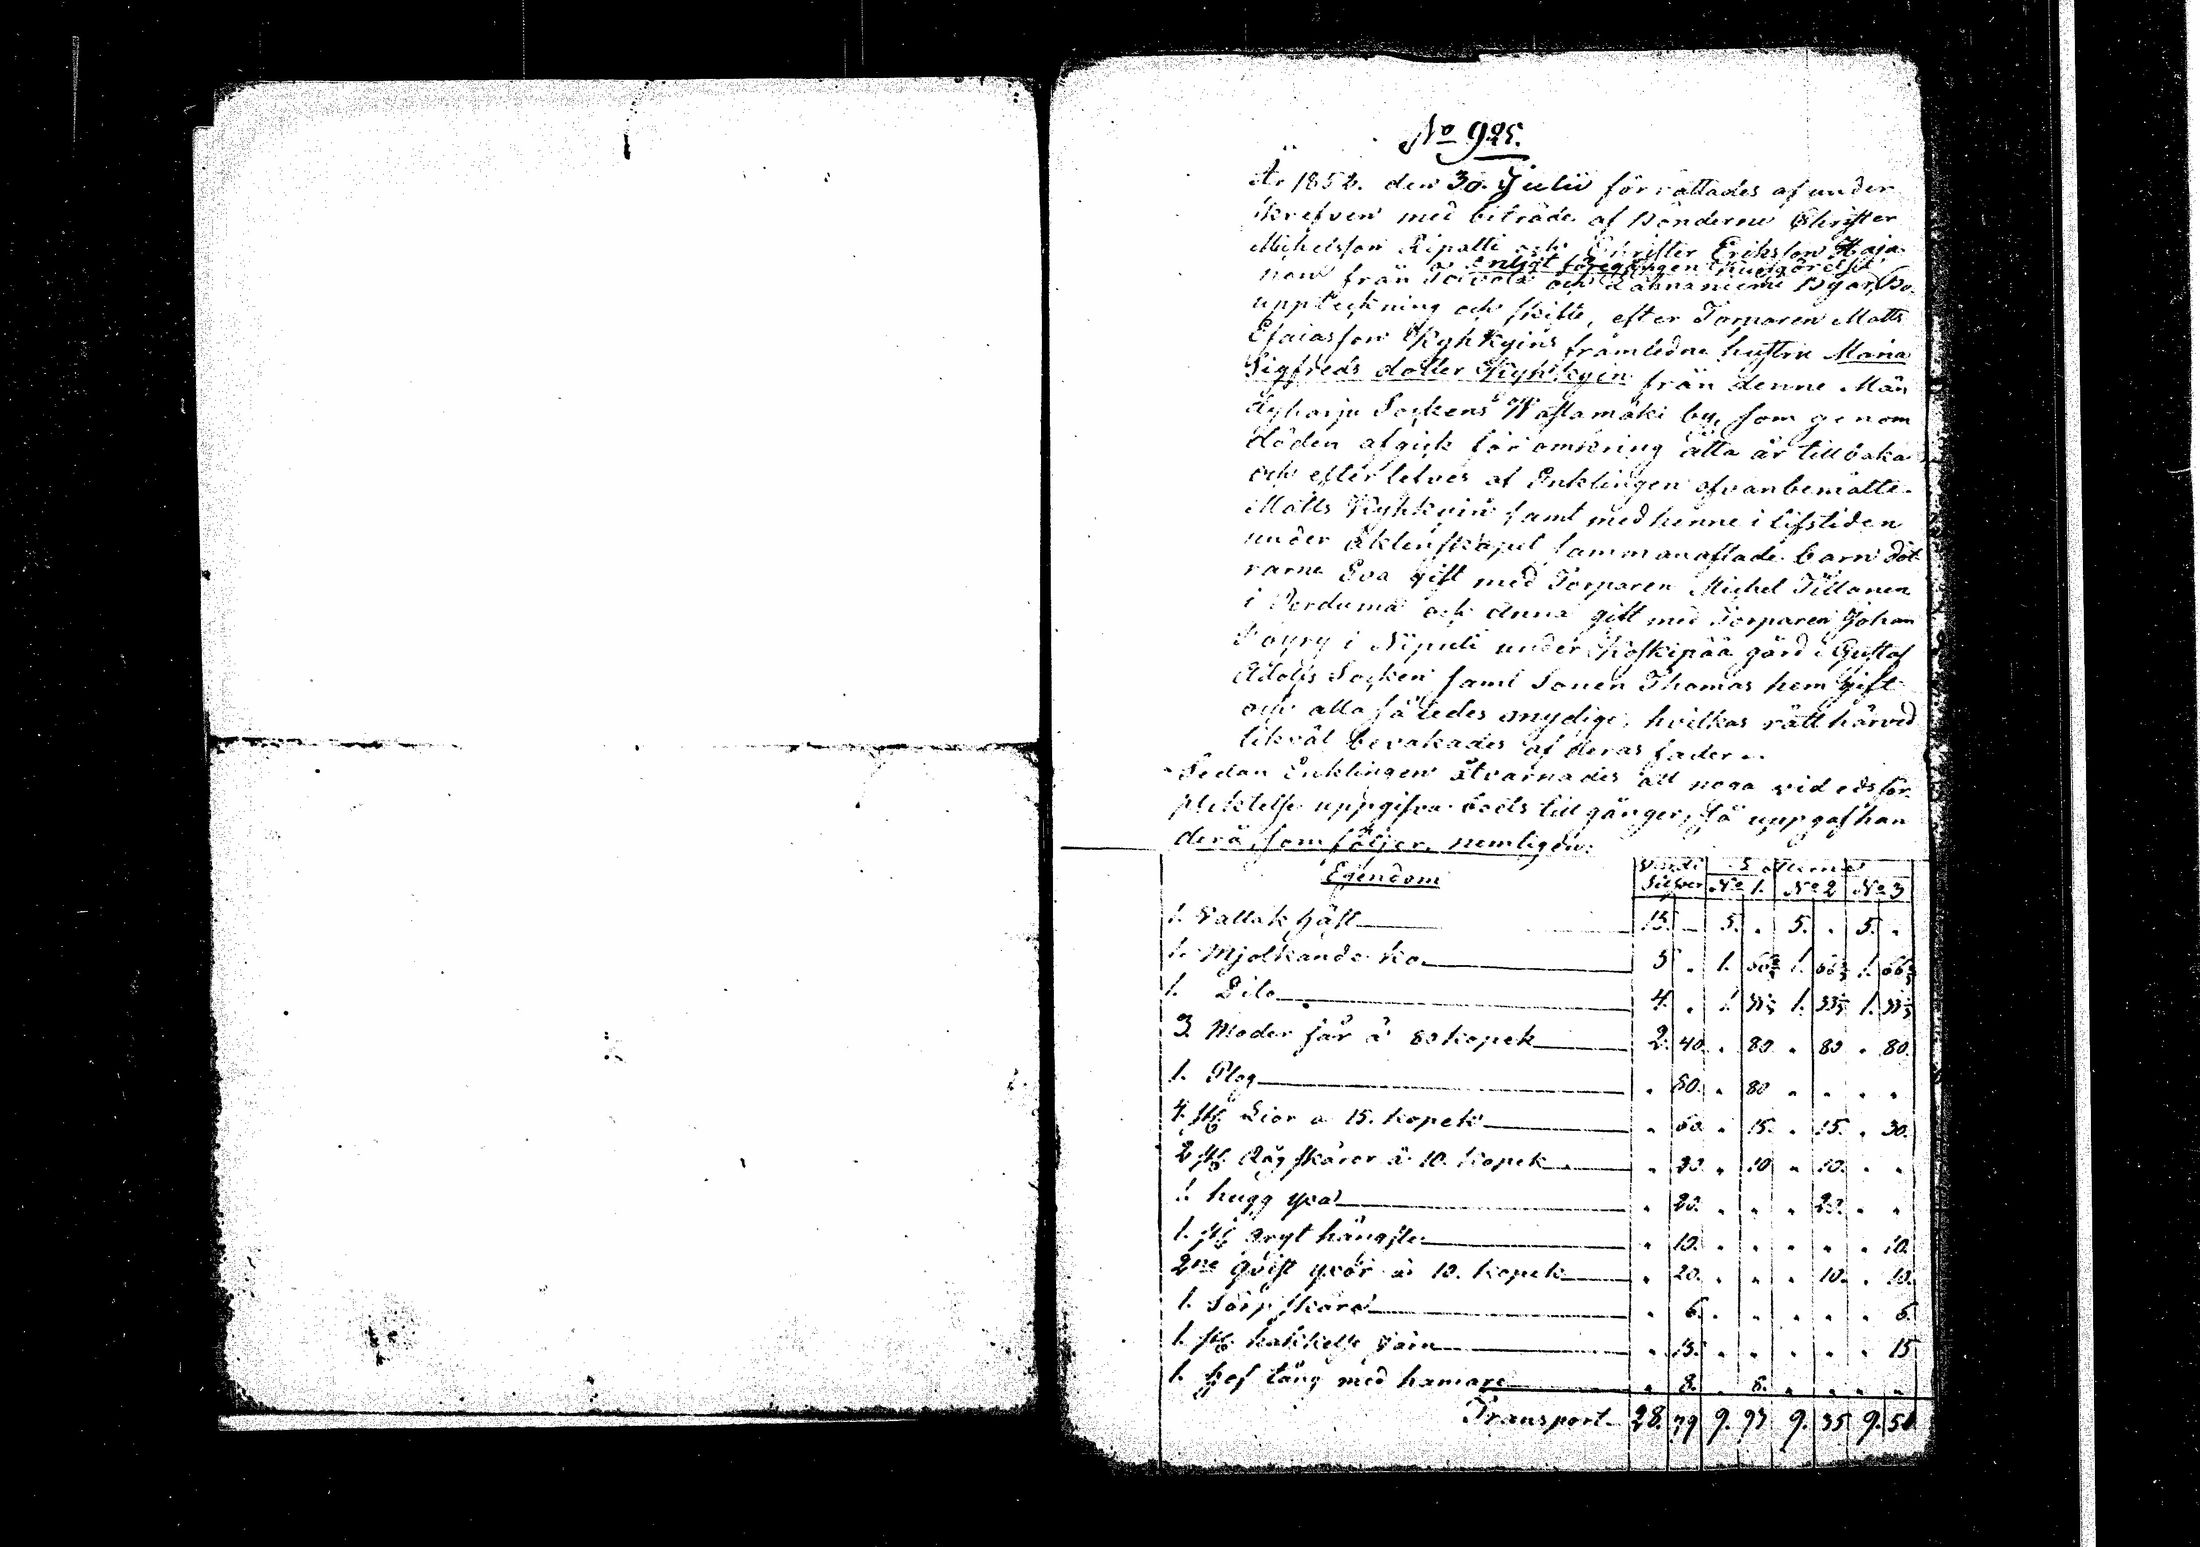 No 925.
År 1852. den 30. Julii förrättades af under
skrefven med biträde af Bönderne Christer
Michelsson Ripatti och Christer Eriksson Haja-
enligt föregången kungörelse
nen från Toivola och Lahnaniemi Byar, Bo-
uppteckning och skifte, efter Torparen Matts
Esaiasson Kyhkyins framledne hustru Maria
Sigfreds dotter Kyhkyin från denne Män
dyharju Sockens Wastamäki by, som genom
döden afgick för omkring åtta år tillbaka
och efterlefves af Enklingen ofvanbemälte
Matts Kyhkyin samt med henne i lifstiden
under äktenskapet sammanaflade barn döt
rarne Eva gift med Torparen Michel Tillanen
i Perduma och Anna gift med Torparen Johan
Poyry i Niputi under Koskipää gård i Gustaf
Adolfs Socken samt Sonen Thomas hemgift
och alla således myndige, hvilkas rätt härvid
likväl bevakades af deras fader.
Sedan Enklingen åtvarnades att noga vid edsför-
pliktelse uppgifva boets tillgånger, så uppgaf han
derå, som följer, nemligen:
Egendom Silfver No 1. No 2 No 3
1. Vallak häst 15. - 5. . 5. . 5. .
1. Mjölkande ko 5 . 1. 66 2/3 1. 66 2/3 1. 66 2/3
1. Dito 4. . 1. 33 1/3 1. 33 1/3 1. 33 1/3
3. Moder får à 80 kopek 2. 40. . 80 . 80 . 80.
1. Plog . 80. . 80 . . . .
4. st. Lior a 15. kopek . 60 . 15. . 15. . 30.
2 st. Råg skäror à 10. kopek . 20. . 10 . 10. . .
1. hugg yxa . 20. . . . 20. . .
1. st. gryt hängsle . 10. . . . . . 10.
2ne qvist yxor à 10. kopek . 20. . . . 10. . 10.
1. Sörp skära . 6. . . . . . 6.
1. st. järn . 15. . . . . . 15
1. Hof tång med hamare . 8. . 8. . . . .
Transport. 28. 79 9. 93 9. 35 9. 51